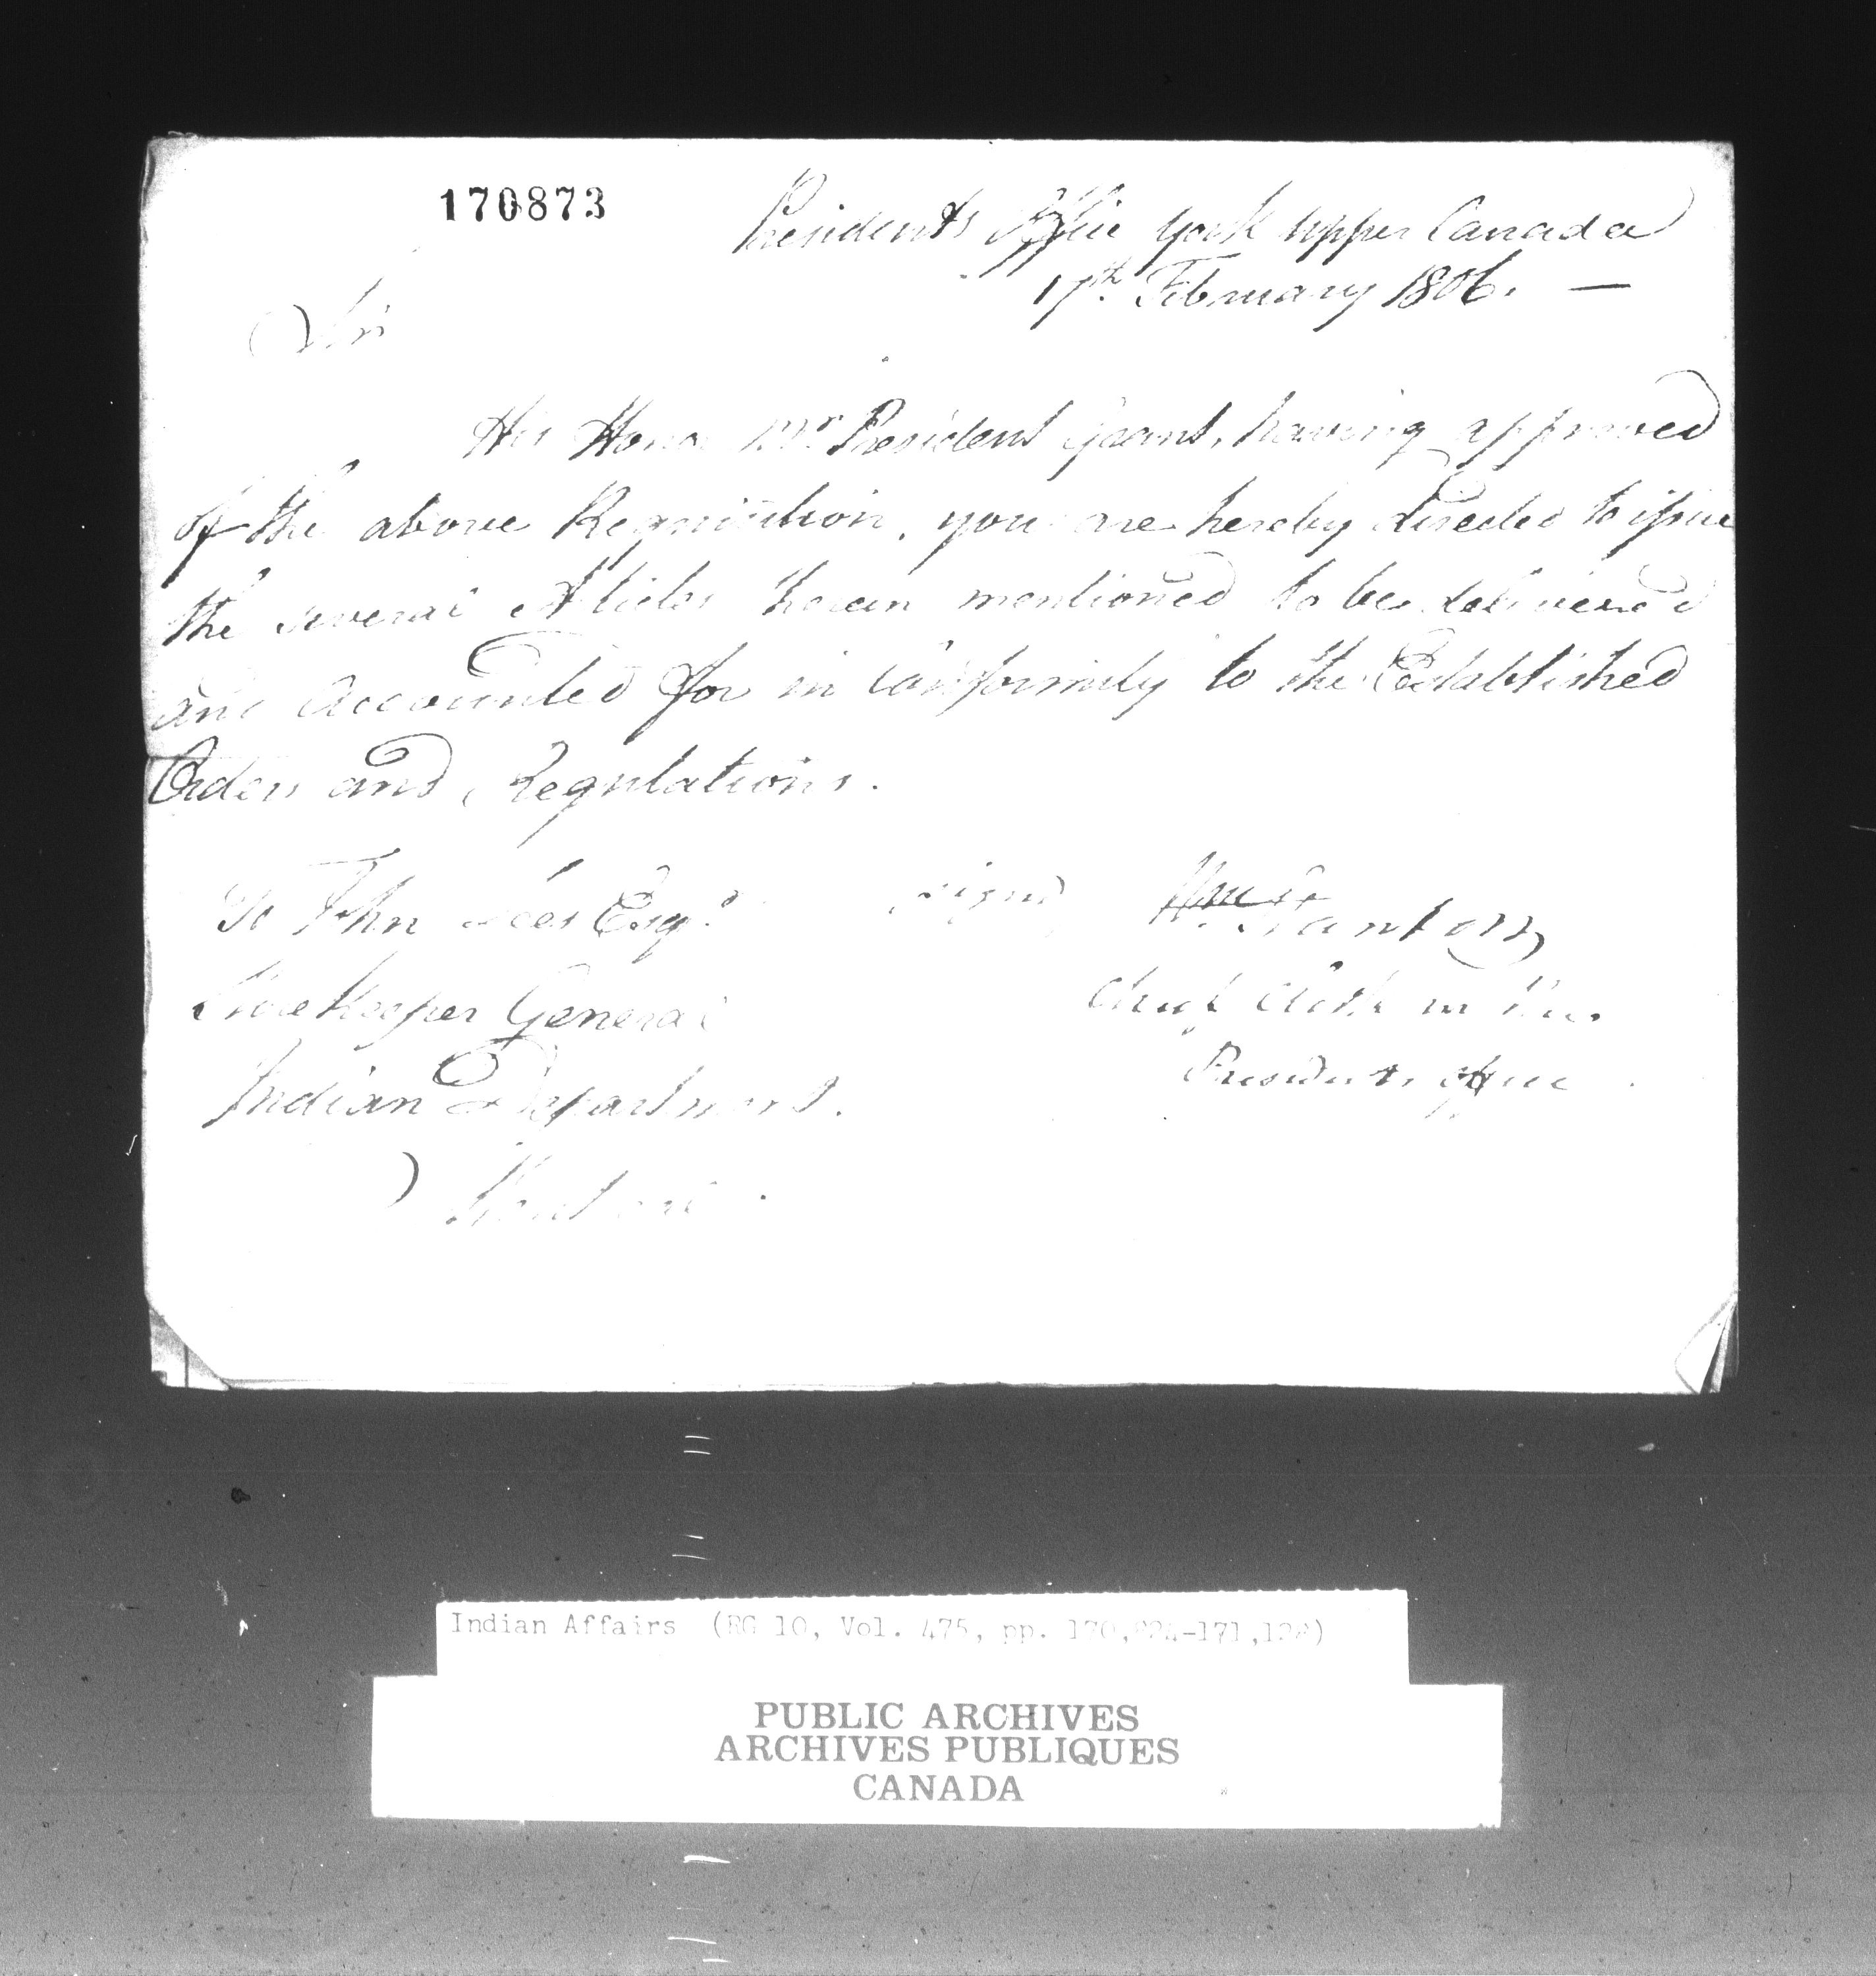 170873
Presidents Office York Upper Canada
17th February 1806. —
Sir
His Honor Mr President Grant, having approved
of the above Requisition, you are hereby directed to issue
the several Articles therein mentioned to be delivered
and Accounted for in Conformity to the Established
Orders and Regulations.
To John Lees Esqr signd Wm Stanton
Storekeeper General Chief Clerk in the
Indian Department. Presidents Office
Montreal.
Indian Affairs (RG 10, Vol. 475, pp.
PUBLIC ARCHIVES
ARCHIVES PUBLIQUES
CANADA